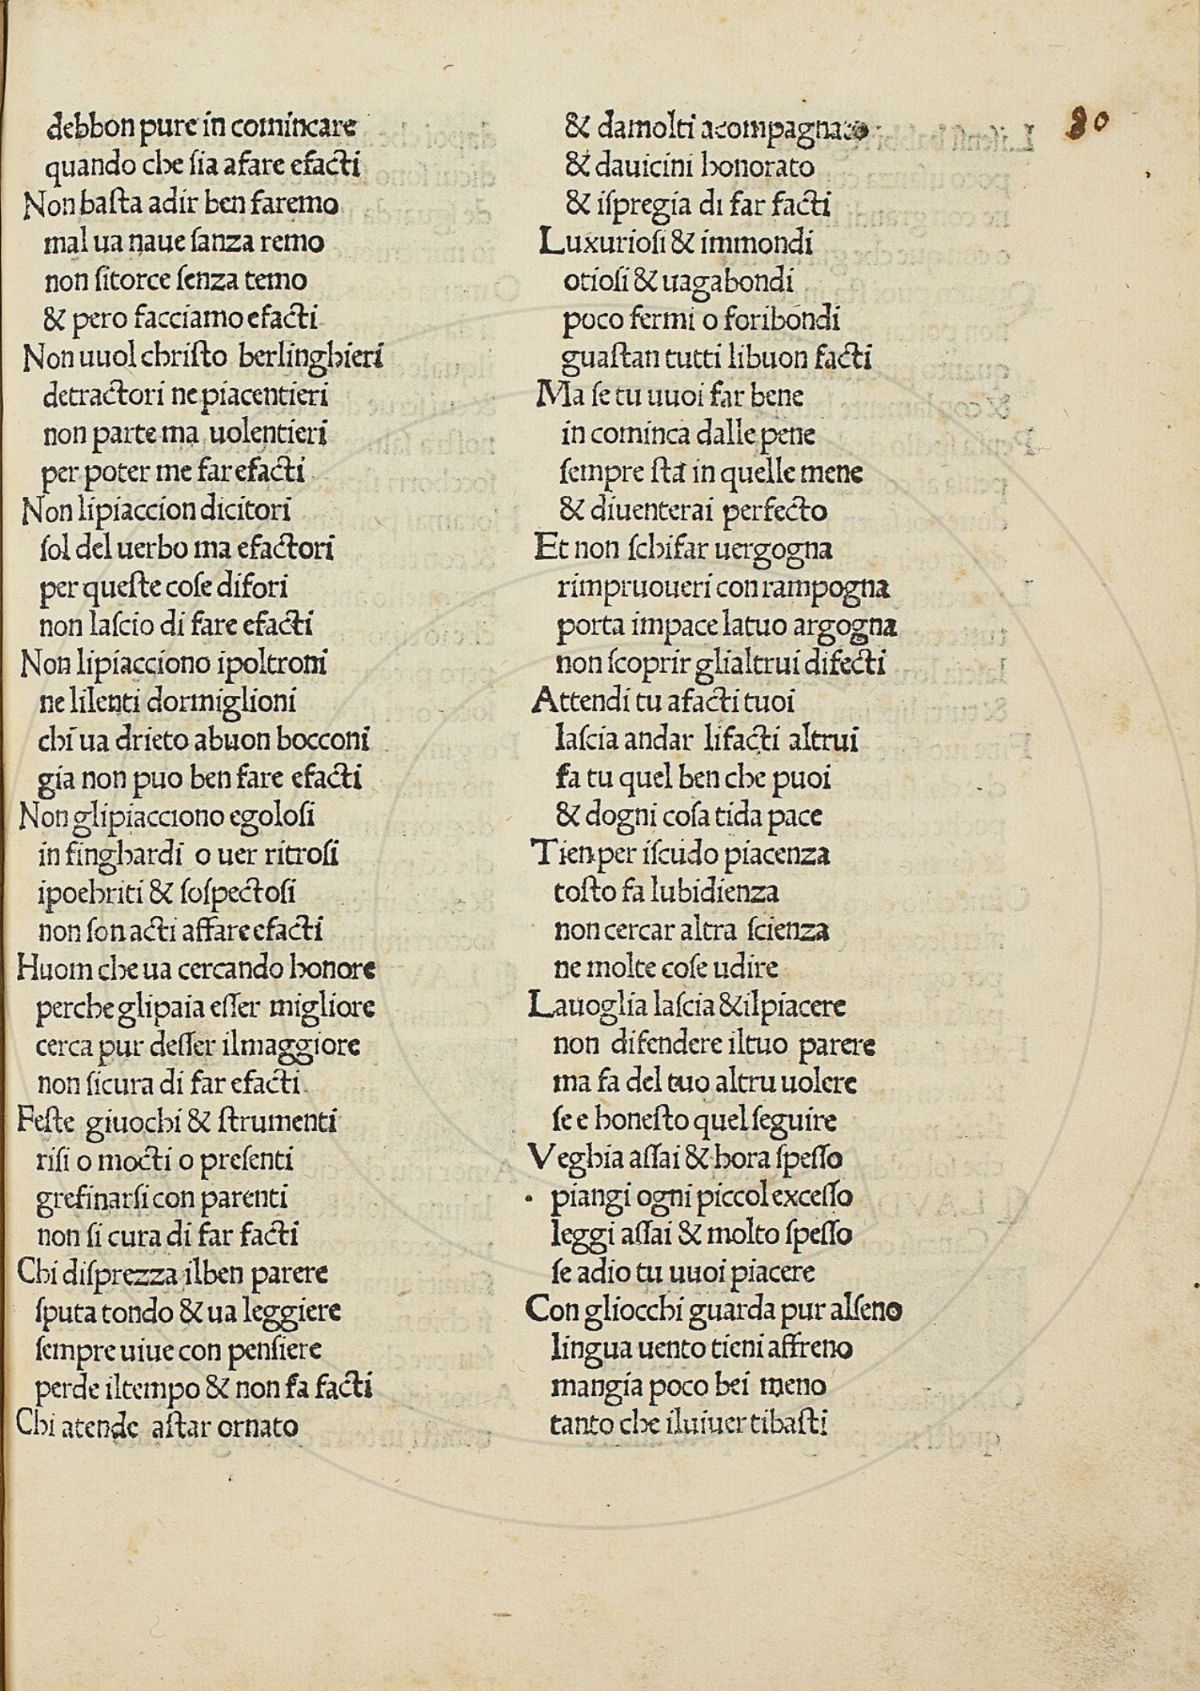 80
debbon pure in comincare
quando che sia afare efacti
Non basta adir ben faremo
mal ua naue sanza remo
non sitorce senza temo
& pero facciamo efacti
Non uuol christo berlinghieri
detractori ne piacentieri
non parte ma uolentieri
per poter me far efacti
Non lipiaccion dicitori
sol del uerbo ma efactori
per queste cose difori
non lascio di fare efacti
Non lipiacciono ipoltroni
ne lilenti dormiglioni
chi ua drieto abuon bocconi
gia non puo ben fare efacti
Non glipiacciono egolosi
in finghardi o uer ritrosi
ipochriti & sospectosi
non son acti affare efacti
Huom che ua cercando honore
perche glipaia esser migliore
cerca pur desser ilmaggiore
non sicura di far efacti
Feste giuochi & strumenti
risi o mocti o presenti
grefinarsi con parenti
non si cura di far facti
Chi disprezza ilben parere
sputa tondo & ua leggiere
sempre uiue con pensiere
perde iltempo & non fa facti
Chi atende astar ornato
& damolti acompagnato
& dauicini honorato
& ispregia di far facti
Luxuriosi & immondi
otiosi & uagabondi
poco fermi o foribondi
guastan tutti libuon facti
Ma se tu uuoi far bene
in cominca dalle pene
sempre sta in quelle mene
& diuenterai perfecto
Et non schifar uergogna
rimpruoueri con rampogna
porta impace latuo argogna
non scoprir glialtrui difecti
Attendi tu afacti tuoi
lascia andar lifacti altrui
fa tu quel ben che puoi
& dogni cosa tida pace
Tien per iscudo piacenza
tosto fa lubidienza
non cercar altra scienza
ne molte cose udire
Lauoglia lascia & ilpiacere
non difendere iltuo parere
ma fa del tuo altru uolere
se e honesto quel seguire
Veghia assai & hora spesso
piangi ogni piccol excesso
leggi assai & molto spesso
se adio tu uuoi piacere
Con gliocchi guarda pur alseno
lingua uento tieni affreno
mangia poco bei meno
tanto che iluiuer tibasti